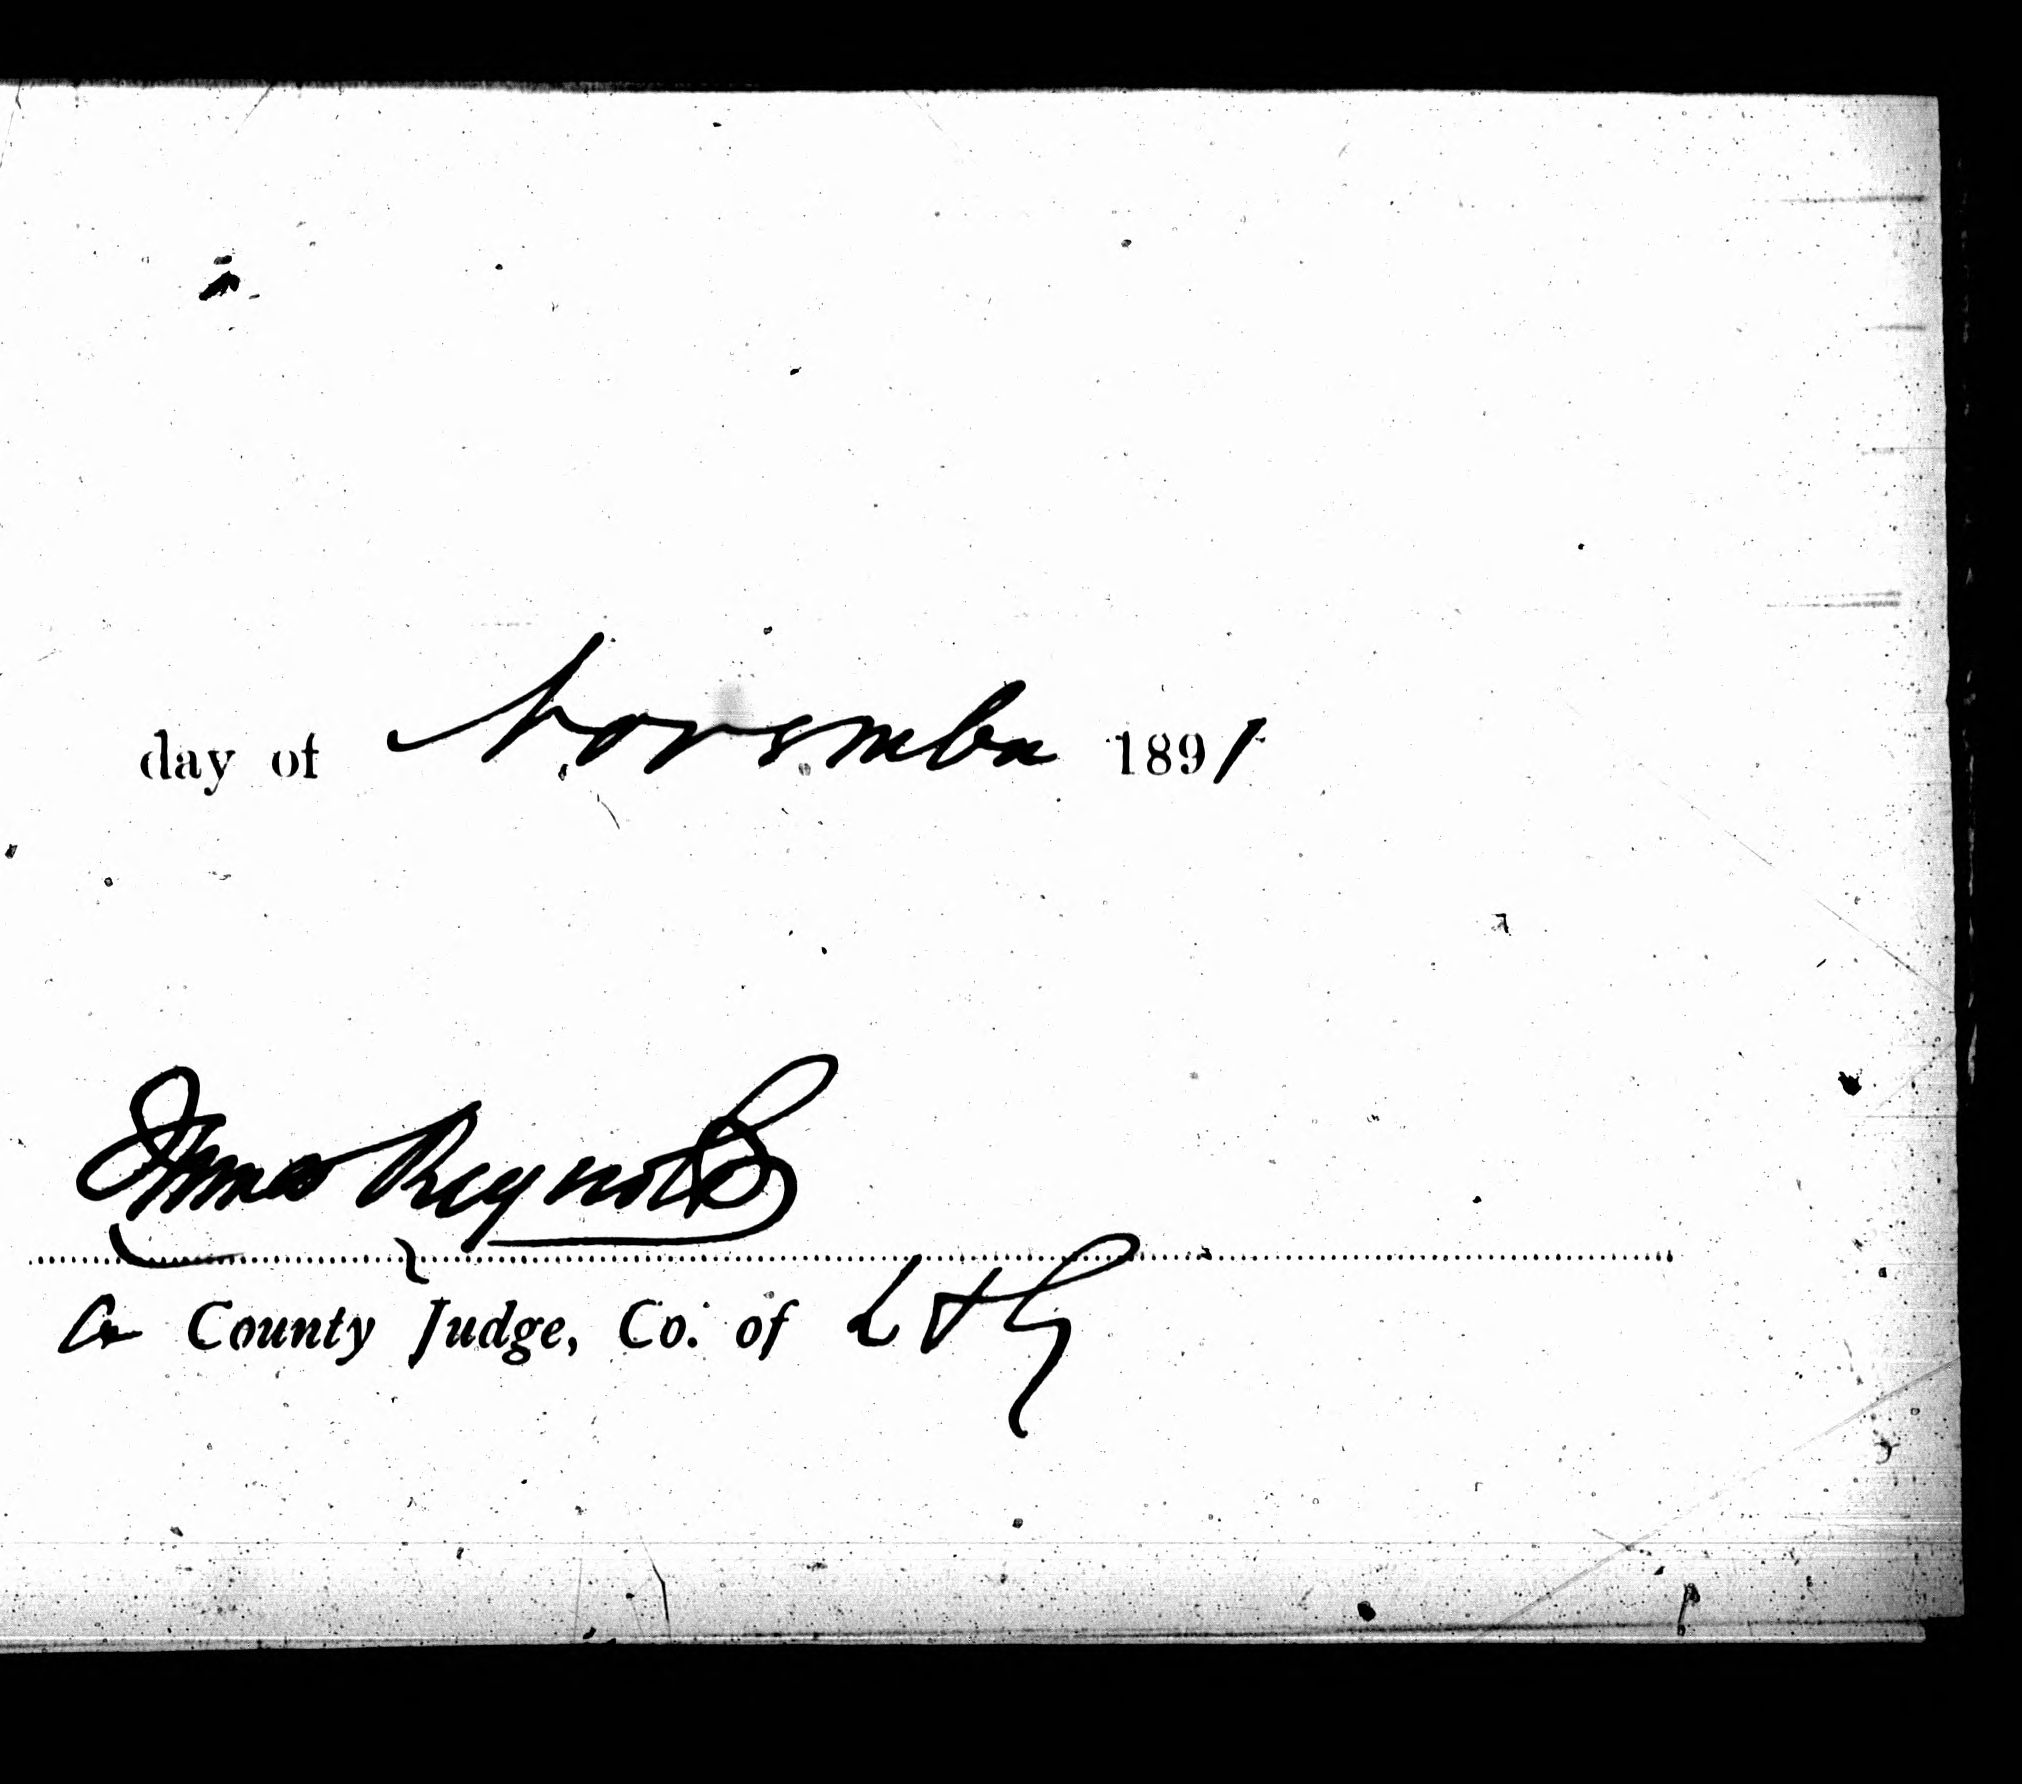 day of November 1891
James Reynolds
Co County Judge, Co. of L & G